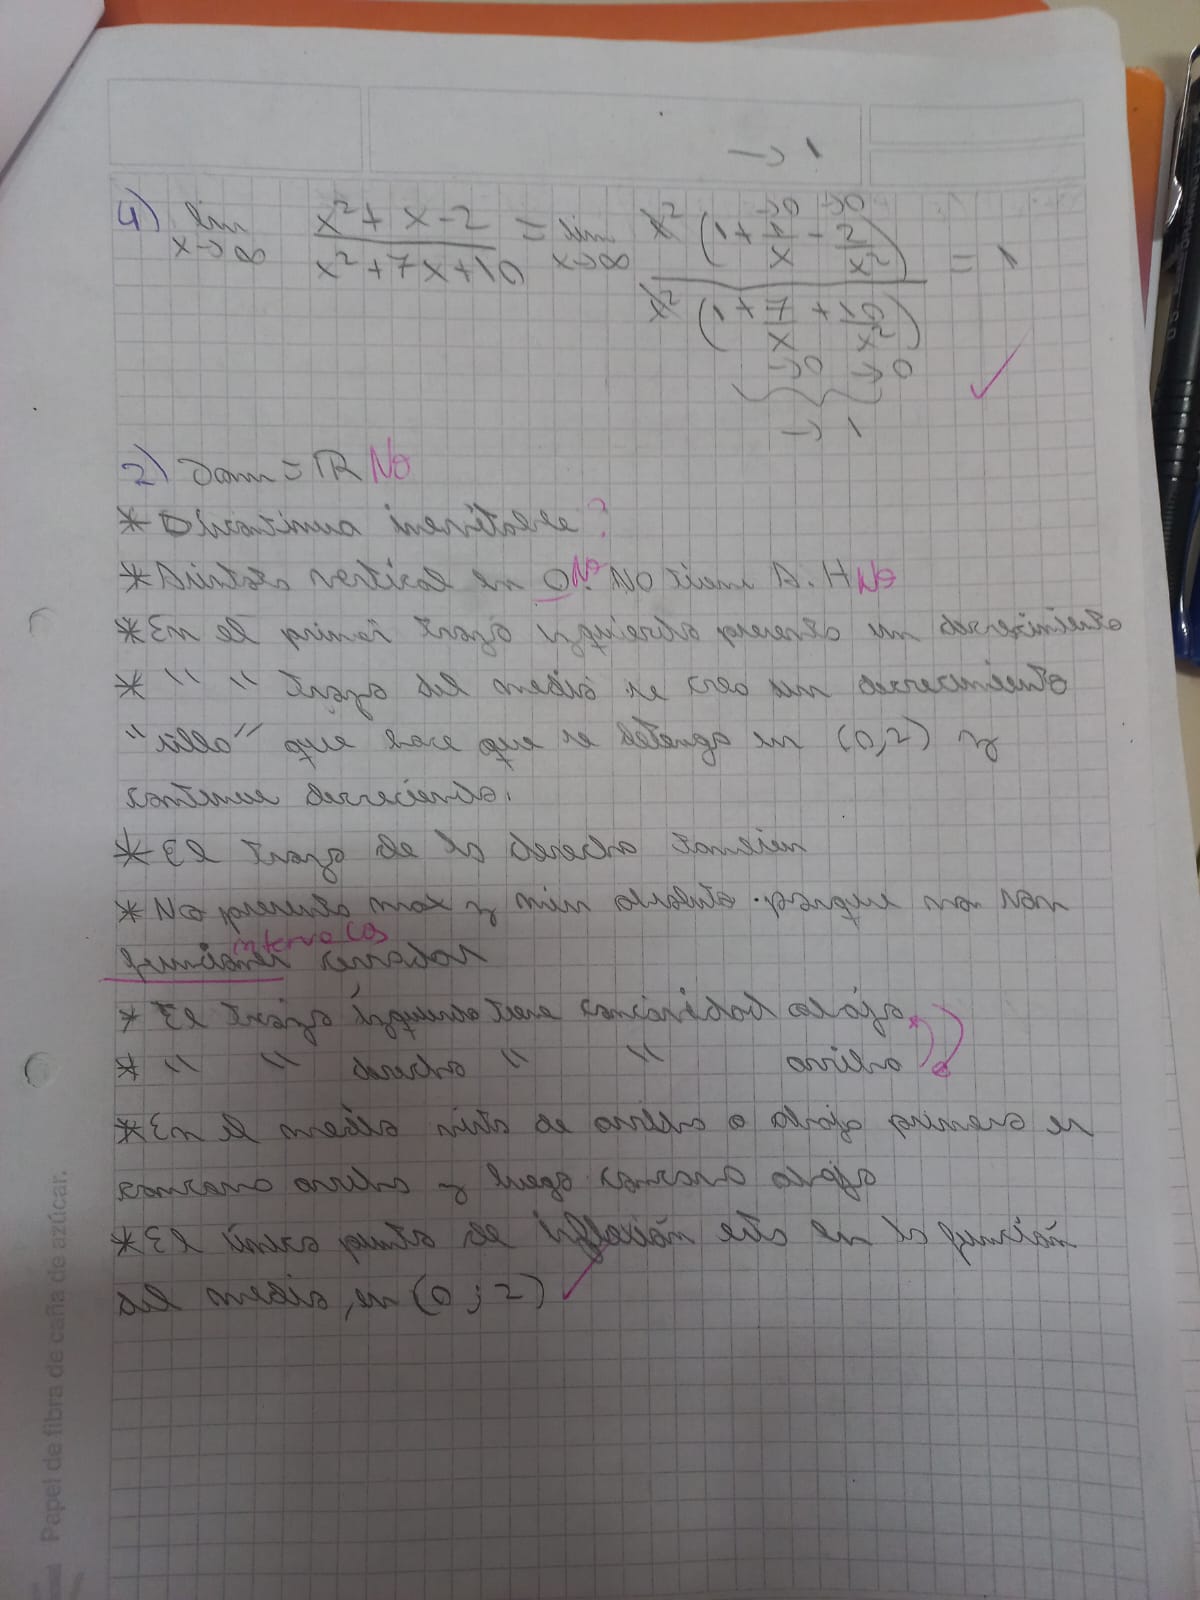 → 1
4) lim x→∞ x²+x-2 / x²+7x+10 = lim x→∞ x²(1+1/x-2/x²) / x²(1+7/x+10/x²) = 1
→0 →0
→0 →0
→ 1
2) Dom = ℝ No
* Discontinua inevitable ?
* Asíntota vertical en 0 No. NO tiene A.H No
* En el primer trazo izquierdo presenta un decrecimiento
* " " trazo del medio se creo un decrecimiento
que hace que se detenga en (0,2) y
continue decreciendo.
* El trazo de la derecha tambien
* No presenta max y min absoluto porque no son
intervalos
funciones cerradas
* El trazo izquierdo tiene concavidad abajo
* " " derecho " " arriba
* En el medio de arriba a abajo primero es
concavo arriba y luego concavo abajo
* El único punto de inflexión esta en la función
del medio, en (0;2)
Papel de fibra de caña de azúcar.